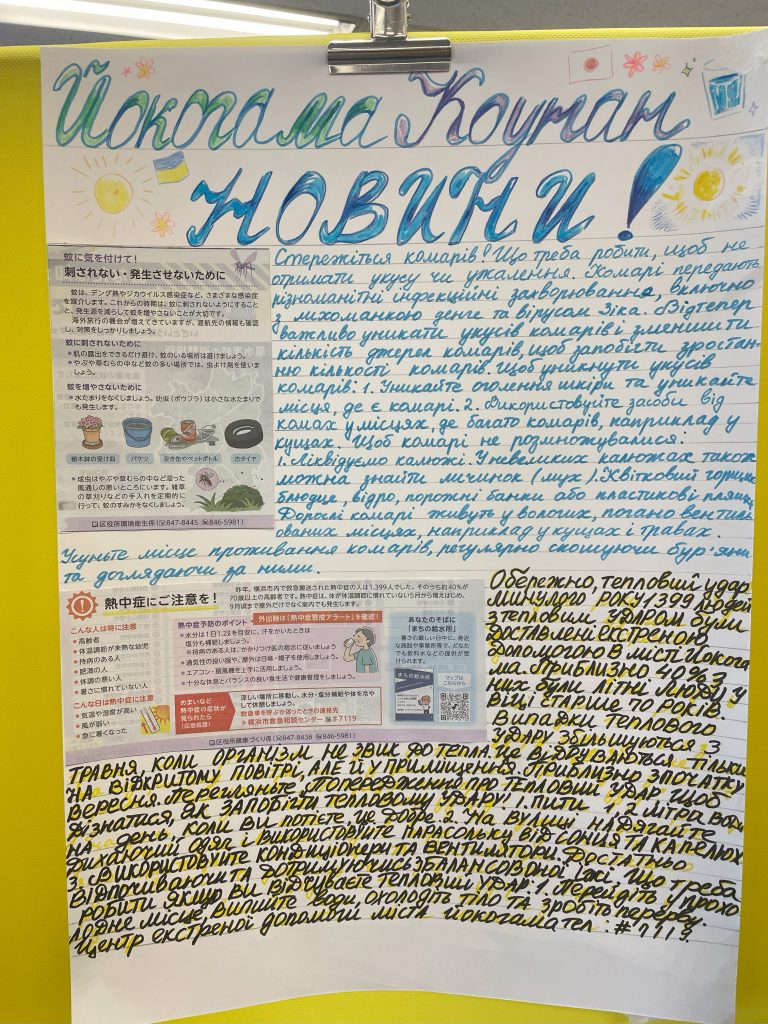 Йокогама Коунан
НОВИНИ!
蚊に気を付けて!
刺されない・発生させないために
蚊は、デング熱やジカウイルス感染症など、さまざまな感染症
を媒介します。これからの時期は、蚊に刺されないようにすること
と、発生源を減らして蚊を増やさないことが大切です。
海外旅行の機会が増えてきていますが、渡航先の情報も確認
し、対策をしっかりしましょう。
蚊に刺されないために
● 肌の露出をできるだけ避け、蚊のいる場所は避けましょう。
● やぶや草むらの中など蚊の多い場所では、虫よけ剤を使いま
しょう。
蚊を増やさないために
● 水たまりをなくしましょう。幼虫(ボウフラ)は小さな水たまりで
も発生します。
植木鉢の受け皿 バケツ 空き缶やペットボトル 古タイヤ
● 成虫はやぶや草むらの中など湿った
風通しの悪いところにいます。雑草
の草刈りなどの手入れを定期的に
行って、蚊のすみかをなくしましょう。
区役所環境衛生係(☎847-8445 ℻846-5981)
Стережіться комарів! Що треба робити, щоб не
отримати укусу чи ужалення. Комарі передають
різноманітні інфекційні захворювання, включно
з лихоманкою денге та вірусом Зіка. Відтепер
важливо уникати укусів комарів і зменшити
кількість джерел комарів, щоб запобігти зростан-
ню кількості комарів. Щоб уникнути укусів
комарів: 1. Уникайте оголення шкіри та уникайте
місця, де є комарі. 2. Використовуйте засоби від
комах у місцях, де багато комарів, наприклад у
кущах. Щоб комарі не розмножувалися:
1. Ліквідуємо калюжі. У невеликих калюжах також
можна знайти личинок (мух). Квітковий горщик
блюдце, відро, порожні банки або пластикові пляшки
Дорослі комарі живуть у вологих, погано вентиль
ованих місцях, наприклад у кущах і травах.
Усуньте місце проживання комарів, регулярно скошуючи бур'яни
та доглядаючи за ними.
熱中症にご注意を!
昨年、横浜市内で救急搬送された熱中症の人は1,399人でした。そのうち約40%が
70歳以上の高齢者です。熱中症は、体が体温調節に慣れていない5月から増えはじめ、
9月頃まで屋外だけでなく室内でも発生します。
こんな人は特に注意
● 高齢者
● 体温調節が未熟な幼児
● 持病のある人
● 肥満の人
● 体調の悪い人
● 暑さに慣れていない人
こんな日は熱中症に注意
● 気温や湿度が高い
● 風が弱い
● 急に暑くなった
熱中症予防のポイント
外出時は「熱中症警戒アラート」を確認!
● 水分は1日1.2ℓを目安に、汗をかいたときは
塩分も補給しましょう。
● 持病のある人は、かかりつけ医の指示に従いましょう。
● 通気性の良い服や、屋外は日傘・帽子を使用しましょう。
● エアコン・扇風機を上手に活用しましょう。
● 十分な休息とバランスの良い食生活で健康管理をしましょう。
めまいなど
熱中症の症状が
見られたら
(応急処置)
涼しい場所に移動し、水分・塩分補給や体を冷や
して休憩しましょう。
救急車を呼ぶか迷ったときの連絡先
▶横浜市救急相談センター ☎#7119
あなたのそばに
「まちの給水所」
暑さの厳しい日中に、身近
な施設や事業所等で、どなた
でも飲料水などの提供が受
けられます。
まちの給水所
マップは
こちらから
区役所健康づくり係(☎847-8438 ℻846-5981)
Обережно, тепловий удар
минулого року 1399 людей
з тепловим ударом були
доставлені екстреною
допомогою в місті Йокога
ма. Приблизно 40% з
них були літні люди у
віці старше 70 років.
Випадки теплового
удару збільшуються з
травня, коли організм не звик до тепла. Це відруваються тільки
на відкритому повітрі, але й у приміщення. Приблизно з початку
вересня. Перегляньте попередження про тепловий удар щоб
дізнатися, як запобігти тепловому удару! 1. Пити 1,2 літра води
на день, коли ви потієте, це добре. 2. На вулиці надягайте
дихаючий одяг і використовуйте парасольки від сонця та капелюх
3. Використовуйте кондиціонери та вентилятори. Достатньо
відпочиваючи та дотримуючись збалансованої їжі. Що треба
робити якщо ви відчуваєте тепловий удар: 1. Перейдіть у прохо
лодне місце, випийте води, охолодіть тіло та зробіть перерву.
Центр екстреної допомоги міста Йокогама тел: #7119.